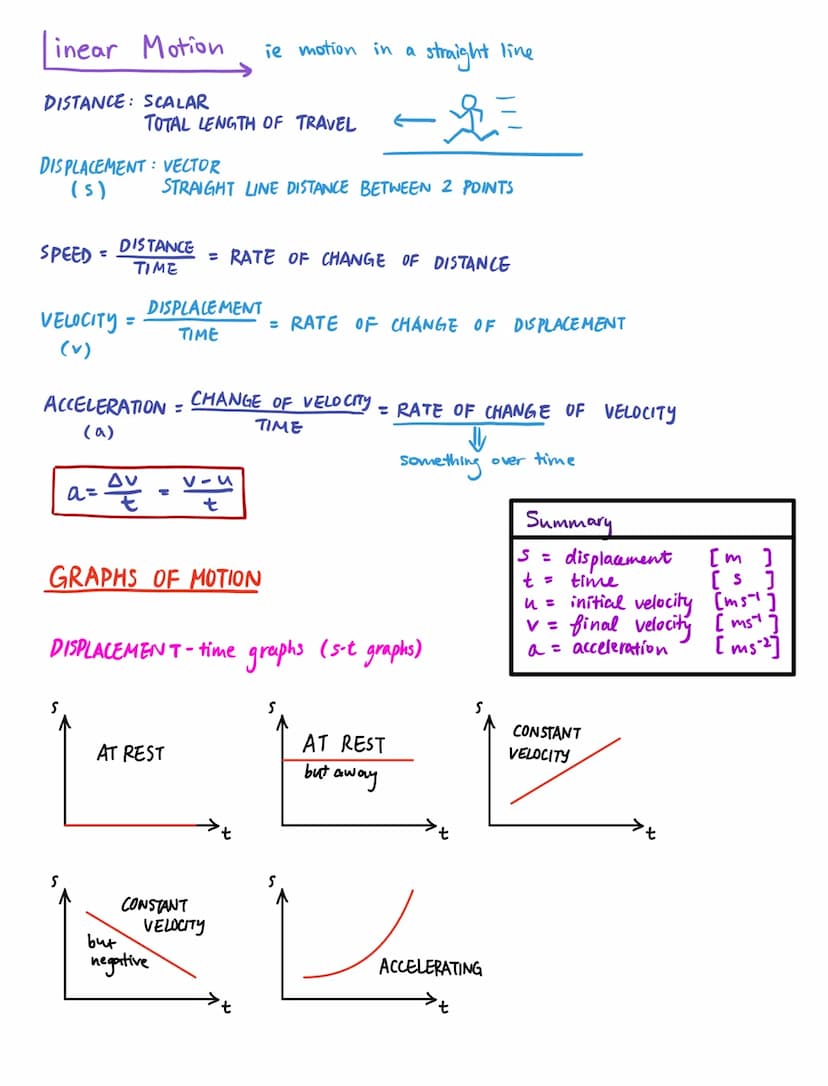 Linear Motion ie motion in a straight line
DISTANCE: SCALAR
TOTAL LENGTH OF TRAVEL
DISPLACEMENT: VECTOR
(s) STRAIGHT LINE DISTANCE BETWEEN 2 POINTS
SPEED = DISTANCE / TIME = RATE OF CHANGE OF DISTANCE
VELOCITY = DISPLACEMENT / TIME = RATE OF CHANGE OF DISPLACEMENT
(v)
ACCELERATION = CHANGE OF VELOCITY / TIME = RATE OF CHANGE OF VELOCITY
(a)
something over time
a = Δv / t = v - u / t
Summary
s = displacement [m]
t = time [s]
u = initial velocity [ms⁻¹]
v = final velocity [ms⁻¹]
a = acceleration [ms⁻²]
GRAPHS OF MOTION
DISPLACEMENT-time graphs (s-t graphs)
s
AT REST
t
s
AT REST
but away
t
s
CONSTANT
VELOCITY
t
s
CONSTANT
VELOCITY
but
negative
t
s
ACCELERATING
t